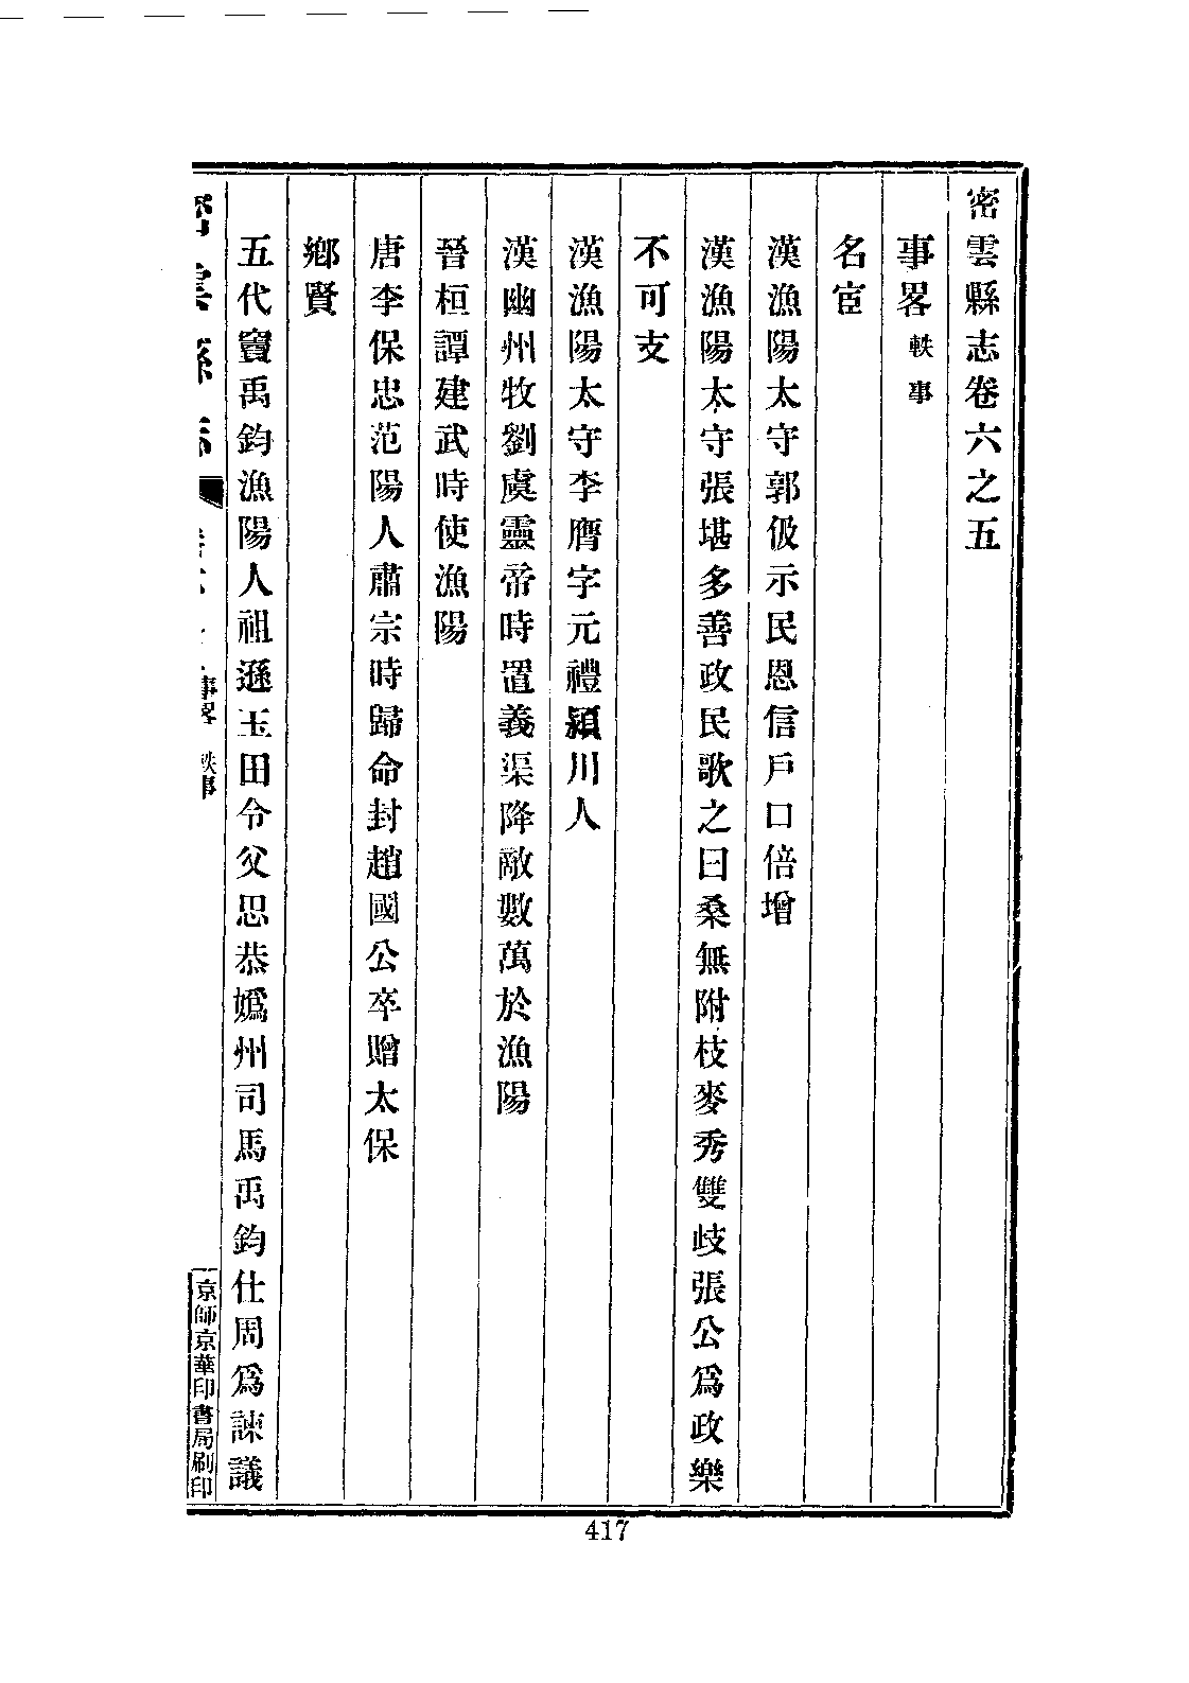 密雲縣志卷六之五
事畧 軼事
名宦
漢漁陽太守郭伋示民恩信戶口倍增
漢漁陽太守張堪多善政民歌之曰桑無附枝麥秀雙歧張公爲政樂
不可支
漢漁陽太守李膺字元禮潁川人
漢幽州牧劉虞靈帝時置義渠降敵數萬於漁陽
晉桓譚建武時使漁陽
唐李保忠范陽人肅宗時歸命封趙國公卒贈太保
鄉賢
五代竇禹鈞漁陽人祖遜玉田令父思恭媯州司馬禹鈞仕周爲諫議
密雲縣志
事畧 軼事
京師京華印書局刷印
417